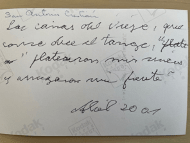 San Antonio
Las canas del viejo, que
como dice el tango, "plate
aron" platearon mis sienes
y arrugaron mi frente"
Abril 2001